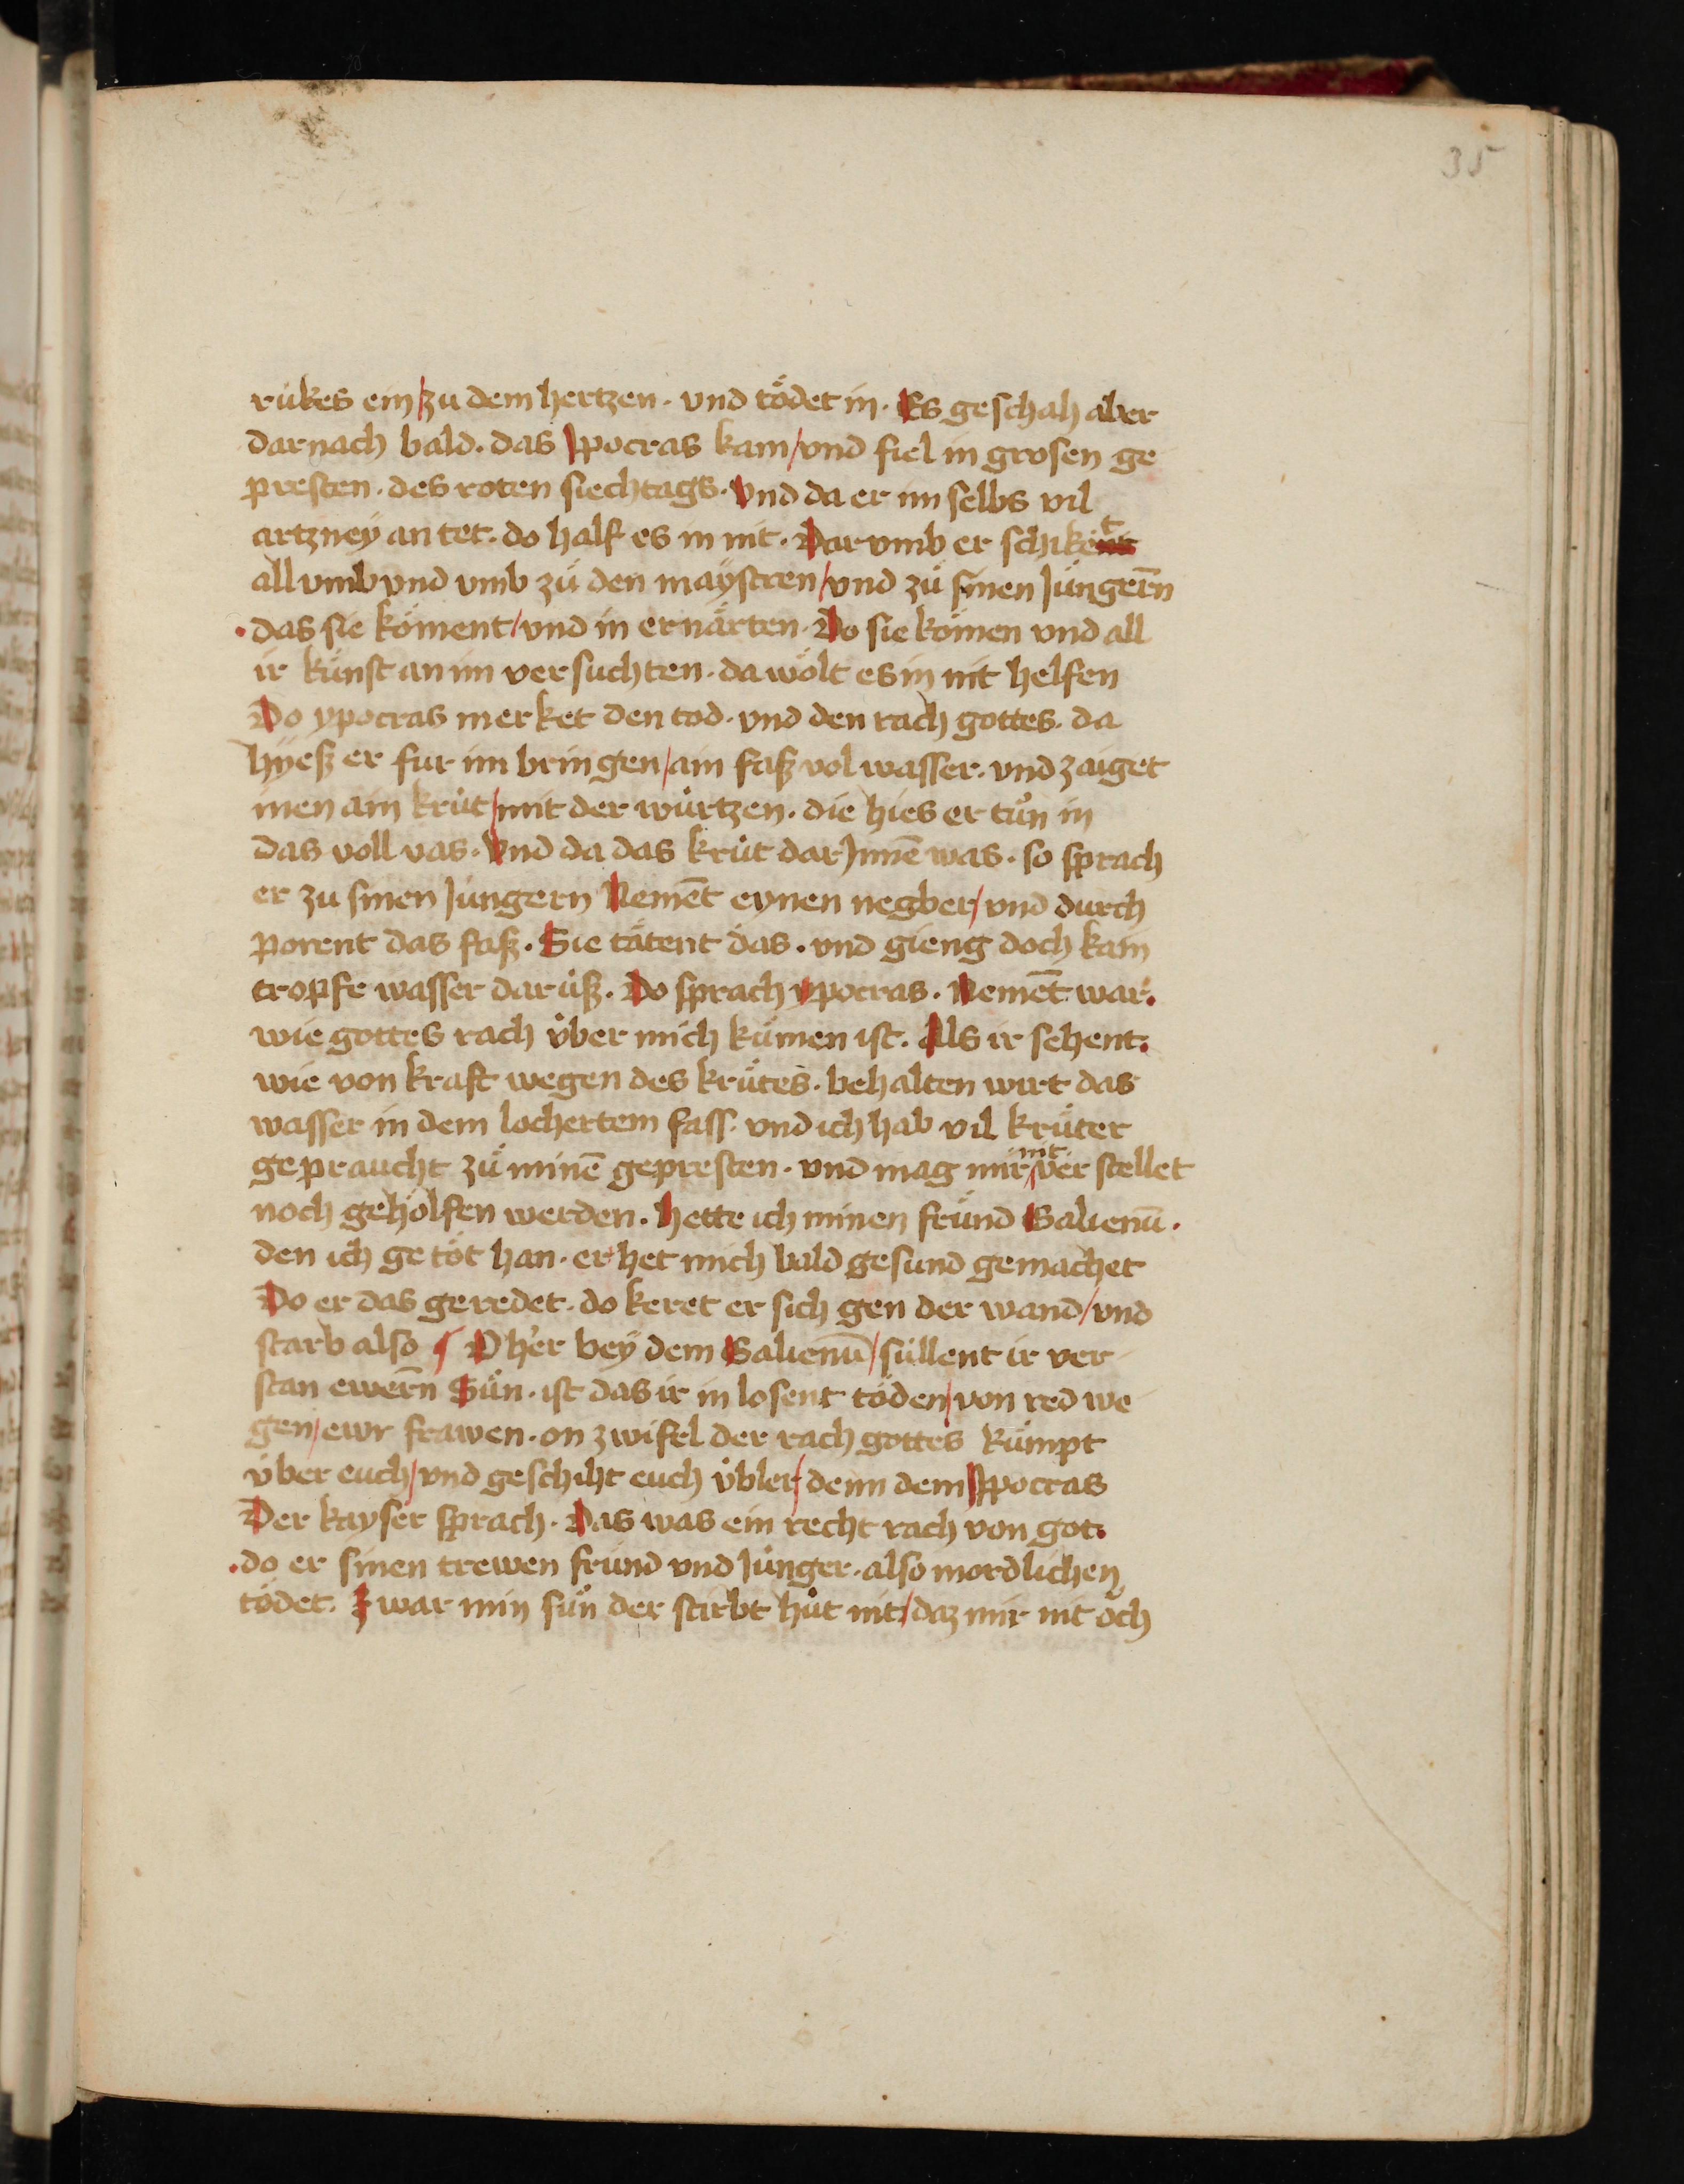 35
rükes ein / zu dem hertzen · vnd tödet in · Es geschah aber
darnach bald · das Jpocras kam / vnd fiel in grosen ge
presten · des roten siechtags · Vnd da er im selbs vil
artzney an tet · do half es in nit · Dar vmb er schiket
all vmb vnd vmb zü den maÿstren / vnd zü sinen Jüngerñ
· das sie köment / vnd in ernärten · Do sie kömen vnd all
ir künst an im versuchten · da wölt es in nit helfen
Do ypocras merket den tod · vnd den rach gottes · da
hyeß er fur im bringen / ain faß vol wasser · vnd zaiget
inen ain krüt / mit der würtzen · die hies er tün in
das voll vas · Vnd da das krüt dar Jnnē was · so sprach
er zu sinen Jüngern Nemēt eynen negber / vnd durch
porent das faß · Sie tätent das · vnd gieng doch kain
tropfe wasser darüß · Do sprach ypocras · Nemēt war ·
wie gottes rach v̈ber mich kümen ist · Als ir sehent ·
wie von kraft wegen des krütes · behalten wirt das
wasser in dem lochertem fass · vnd ich hab vil krüter
gepraucht zü minē gepresten · vnd mag mir nit ver stellet
noch geholfen werden · Hette ich minen fründ Galienū ·
den ich getöt han · er het mich bald gesund gemachet
Do er das geredet · do keret er sich gen der wand / vnd
starb also ¶ O her bey dem Galienū / süllent ir ver
stan ewerñ Sün · ist das ir in losent töden / von red we
gen / ewr frawen · on zwifel der rach gottes kümpt
v̈ber euch / vnd geschiht euch v̈bler / denn dem Jpocras
Der kayser sprach · Das was ein recht rach von got ·
· do er sinen trewen fründ vnd Jünger · also mordlichen
tödet · Zwar min sün der stirbt hüt nit / daz mir nit öch